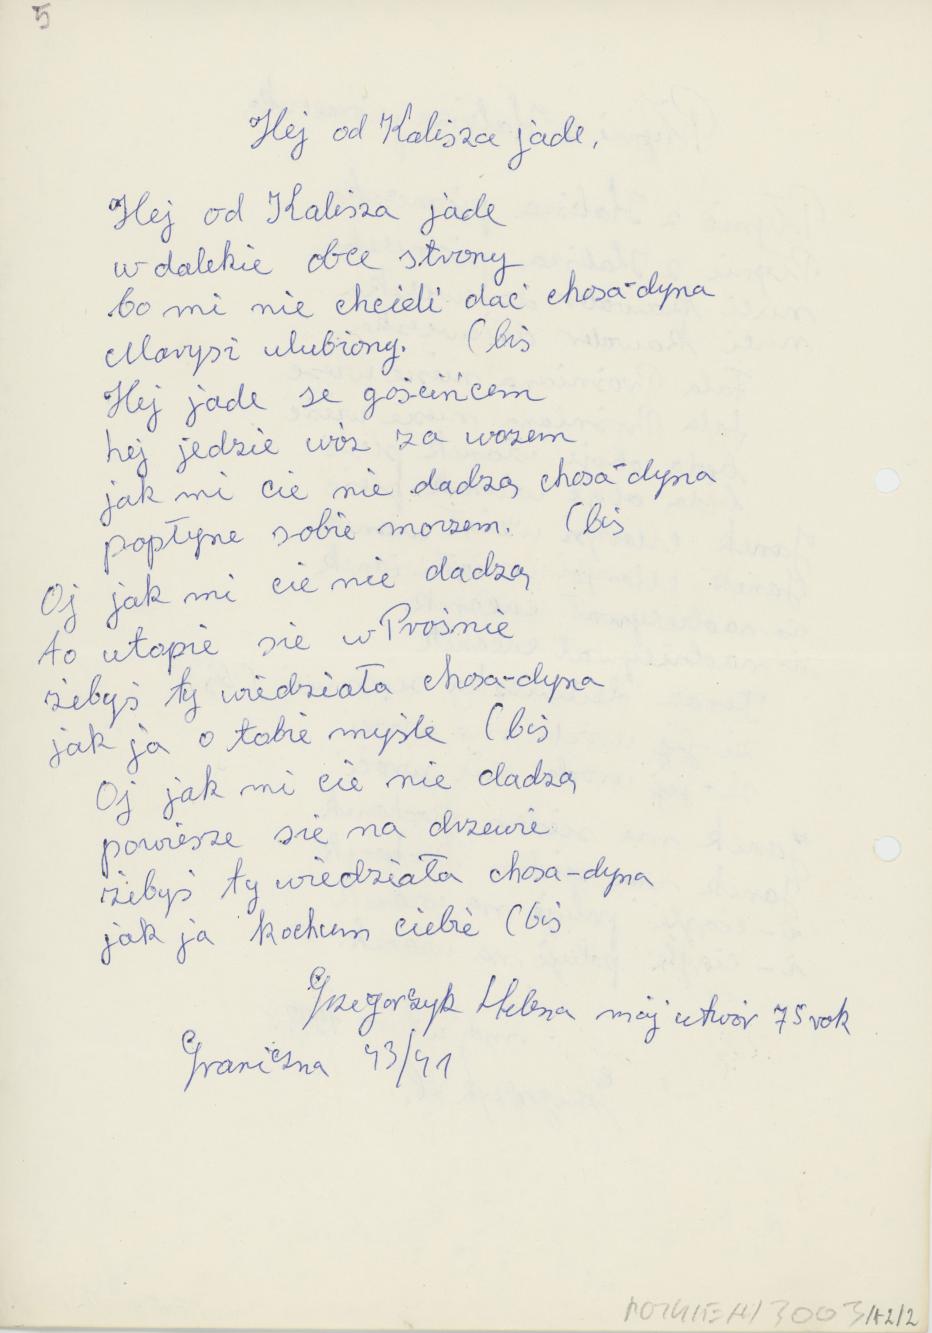 5
Hej od Kalisza jade,
Hej od Kalisza jade
w dalekie obce strony
bo mi nie chcieli dać chosa-dyna
Marysi ulubiony. (bis
Hej jade se gościńcem
hej jedzie wóz za wozem
jak mi cie nie dadzą chosa-dyna
popłyne sobie morzem. (bis
Oj jak mi cie nie dadzą
to utopie sie w Prośnie
żebyś ty wiedziała chosa-dyna
jak ja o tobie myśle (bis
Oj jak mi cie nie dadzą
powiesze sie na drzewie
żebyś ty wiedziała chosa-dyna
jak ja kochum ciebie (bis
Grzegorzyk Helena mój utwór 75 rok
Graniczna 43/41
3003/12/2